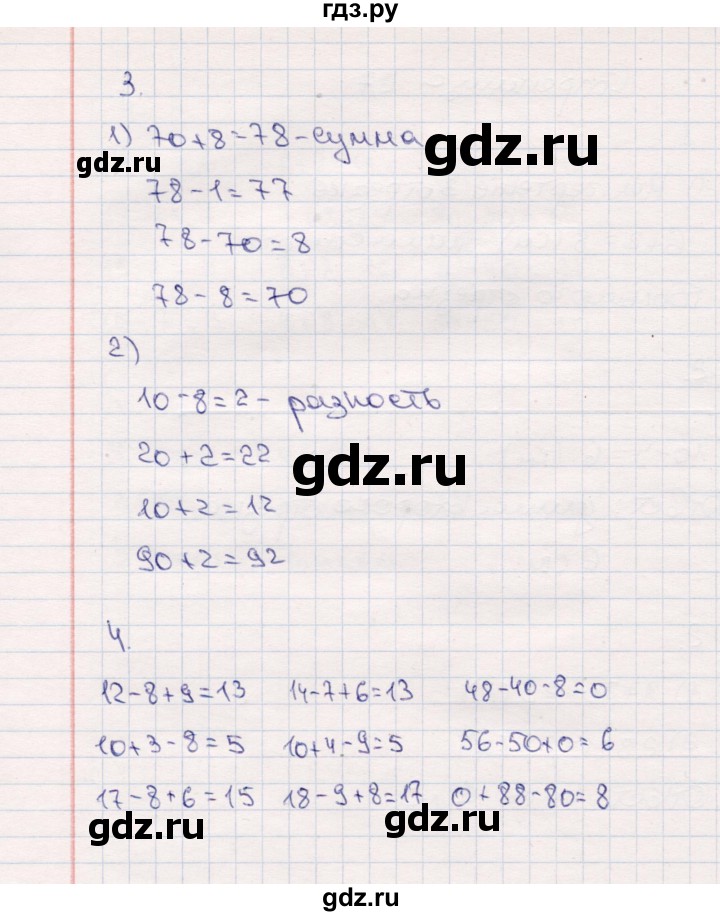 гдз.ру
3.
1) 70+8=78-сумма
gdz.ru
gdz.ru
78-1=77
78-70=8
78-8=70
2)
10-8=2- разность
20+2=22
gdz.ru
10+2=12
90+2=92
4.
12-8+9=13 14-7+6=13 48-40-8=0
10+3-8=5 10+4-9=5 56-50+0=6
17-8+6=15 18-9+8=17 0+88-80=8
gdz.ru gdz.ru
gdz.ru